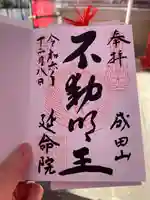 奉拝
成田山
不動明王
延命院
令和六年
十二月八日